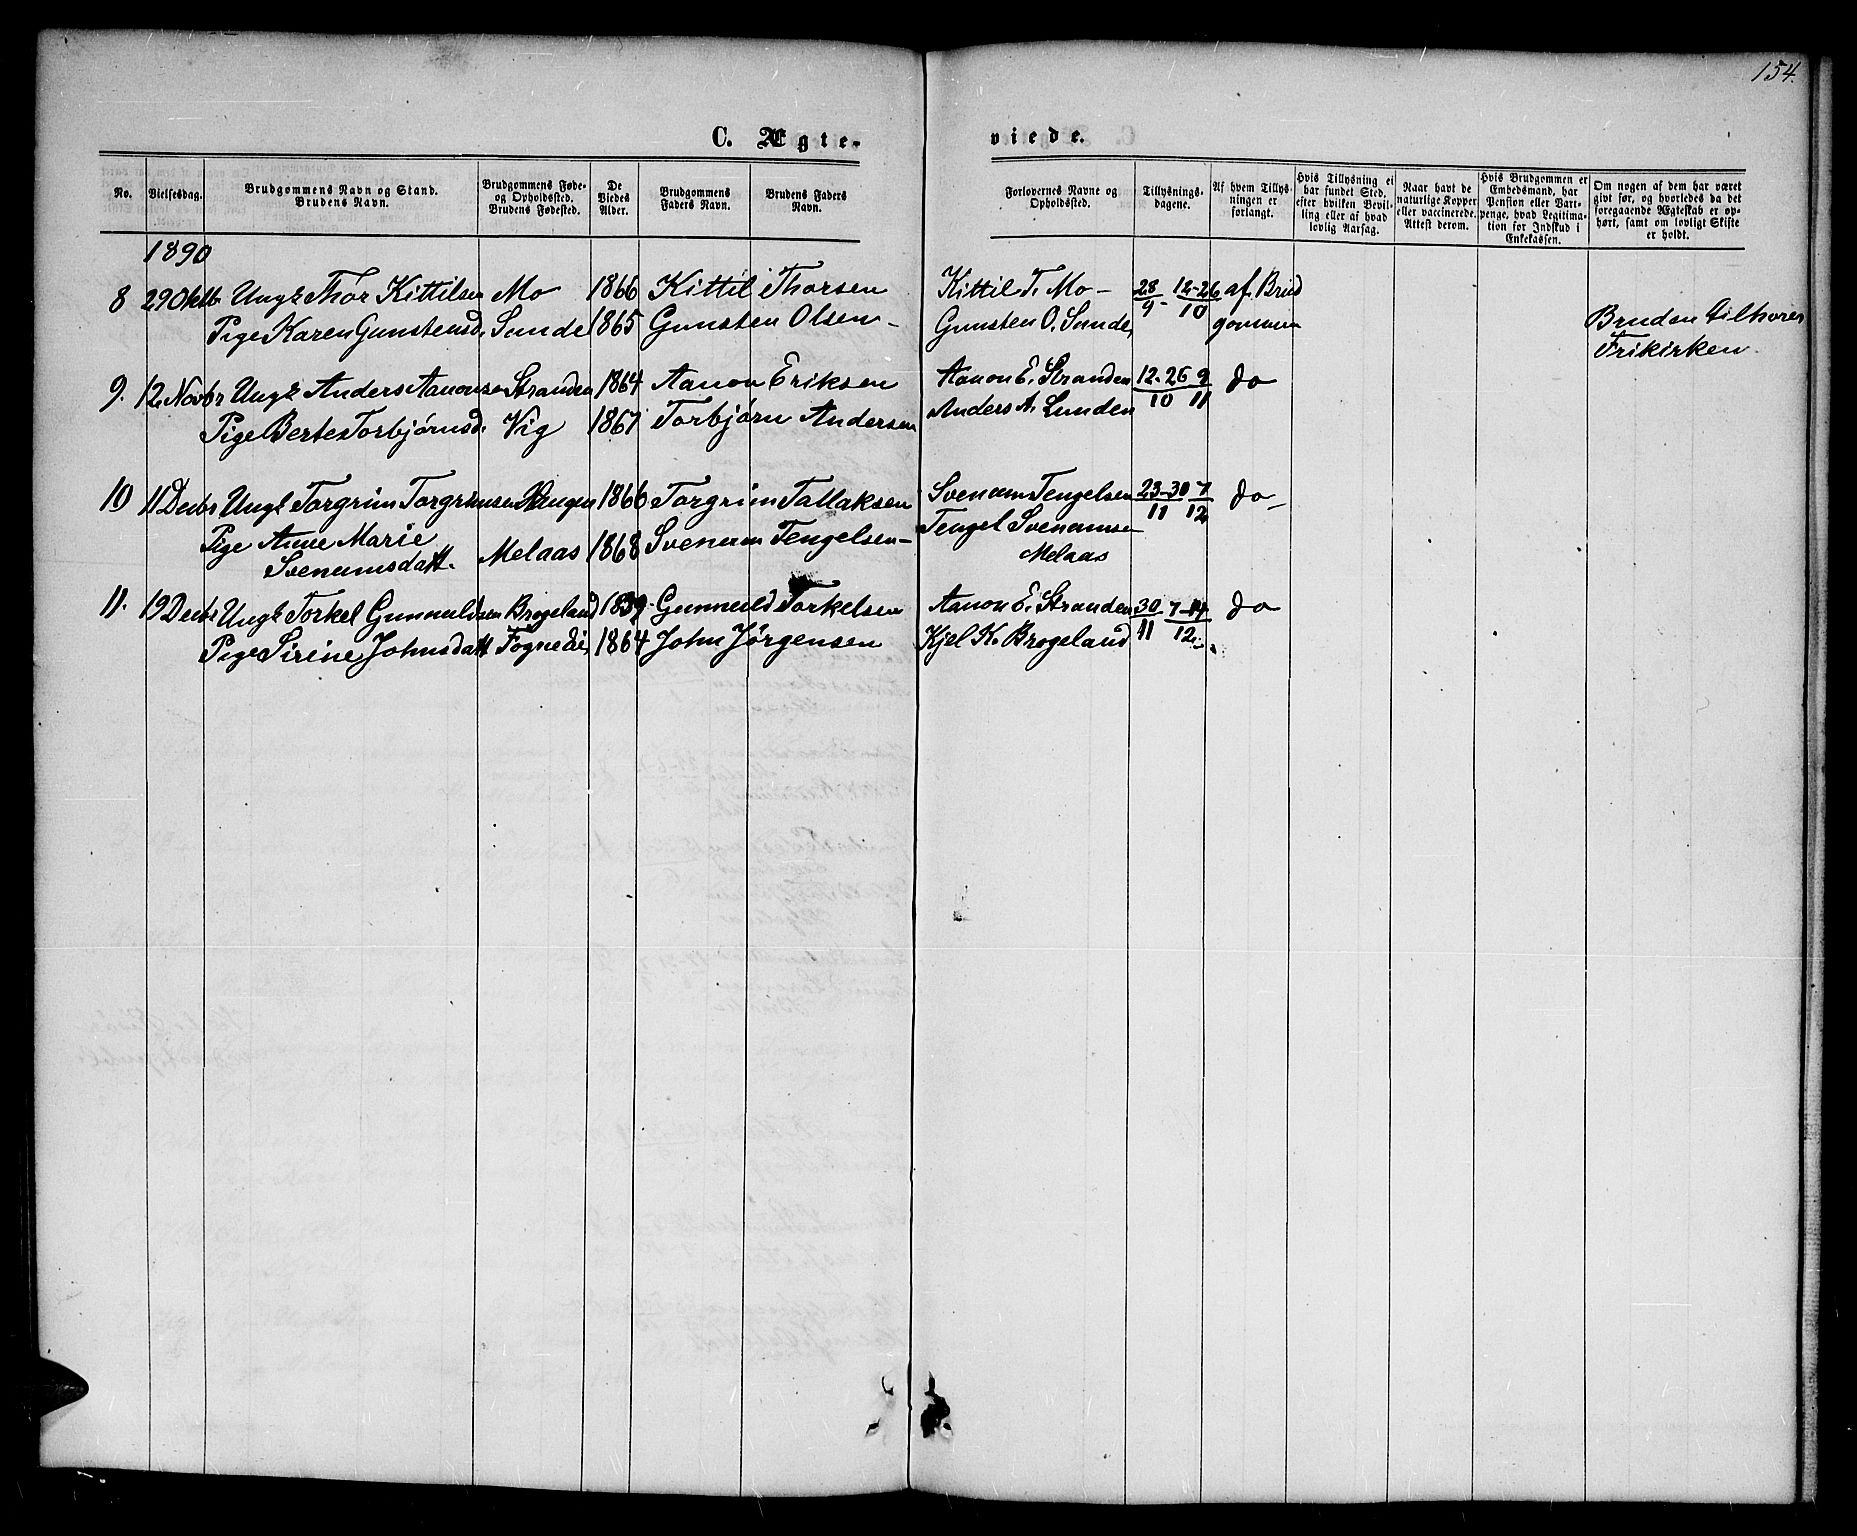 154.
C. Ægte-
viede.
No.
Vielsesdag.
Brudgommens Navn og Stand.
Brudens Navn.
Brudgommens Føde-
og Opholdssted.
Brudens Fødested.
De
Viedes
Alder.
Brudgommens
Faders Navn.
Brudens Faders
Navn.
Forlovernes Navne og
Opholdssted.
Tillysnings-
dagene.
Af hvem Tillys-
ningen er
forlangt.
Hvis Tillysning ei
har fundet Sted,
efter hvilken Bevil-
ling eller af hvad
lovlig Aarsag.
Naar havt de
naturlige Kopper
eller vaccinerede.
Attest derom.
Hvis Brudgommen er
Embedsmand, har
Pension eller Vart-
penge, hvad Legitima-
tion for Indskud i
Enkekassen.
Om nogen af dem har været
givt før, og hvorledes da det
foregaaende Ægteskab er op-
hørt, samt om lovligt Skifte
er holdt.
1890
8 29 Oktb Ungk Thor Kittilsen Mo 1866 Kittil Thorsen Kittil T. Mo - 28/9 - 12-26/10 af Brud
Pige Karen Gunstensd. Sunde 1865 Gunsten Olsen - Gunsten O. Sunde, gommen Bruden tilhører
Frikirken.
9. 12 Novbr Ungk Anders Aanonsen Stranden 1864 Aanon Eriksen Aanon E. Stranden 12-26/10 9/11 do
Pige Berte Torbjørnsd. Vig 1867 Torbjørn Andersen Anders A. Lunden
10 11 Decbr Ungk Torgrim Torgrimsen 1866 Torgrim Tallaksen Svenum Tengelsen 23-30/11 7/12 do -
Pige Anne Marie Svenum Tengelsen - Tengel Svenumsen
Svenumsdatt. Melaas 1868 Melaas
11. 19 Decbr Ungk Torkel Gunnuldsen Brogeland 1859 Gunnuld Torkelsen Aanon E. Stranden 30/11 7-14/12 do
Pige Sirine Johnsdatt Fognedei, 1864 John Jørgensen Kjel K. Brogeland